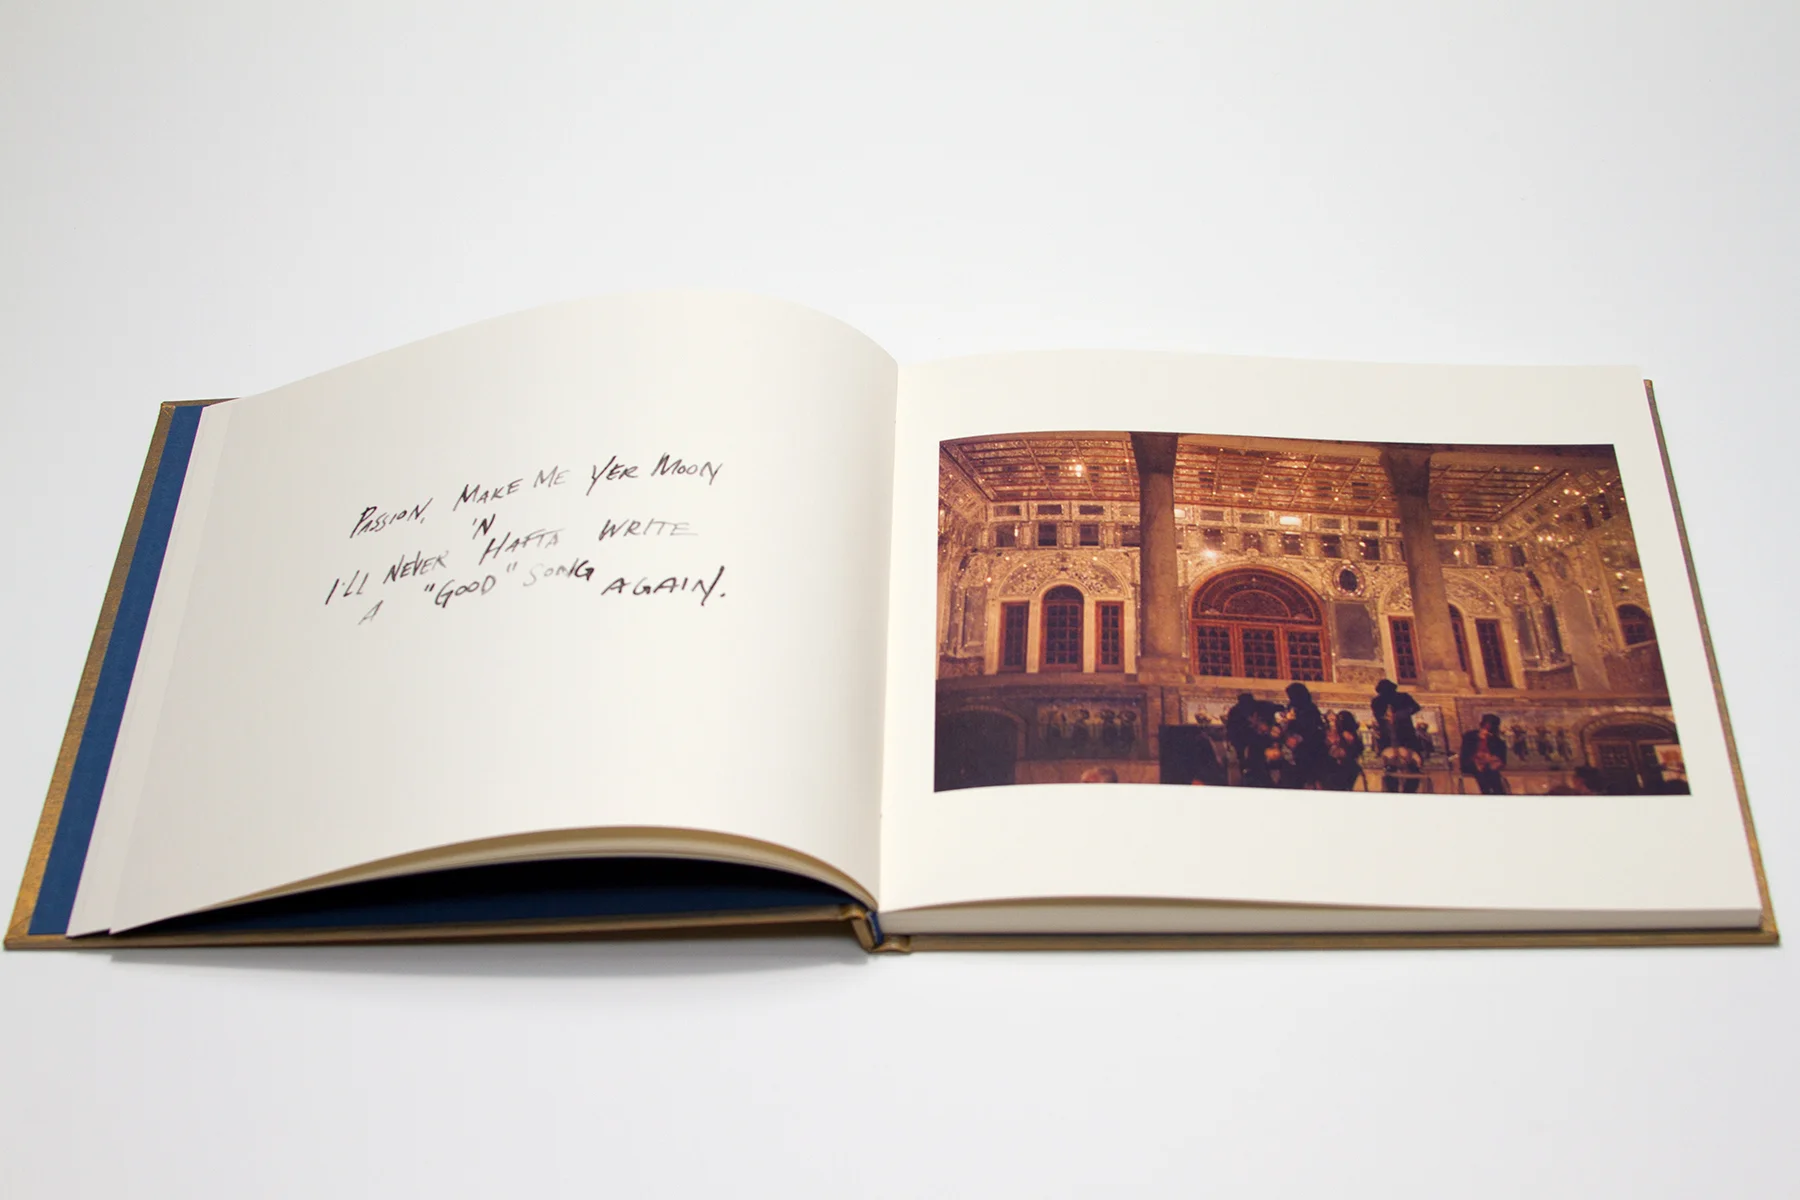 PASSION, MAKE ME YER MOON
'N
I'LL NEVER HAFTA WRITE
A "GOOD" SONG AGAIN.